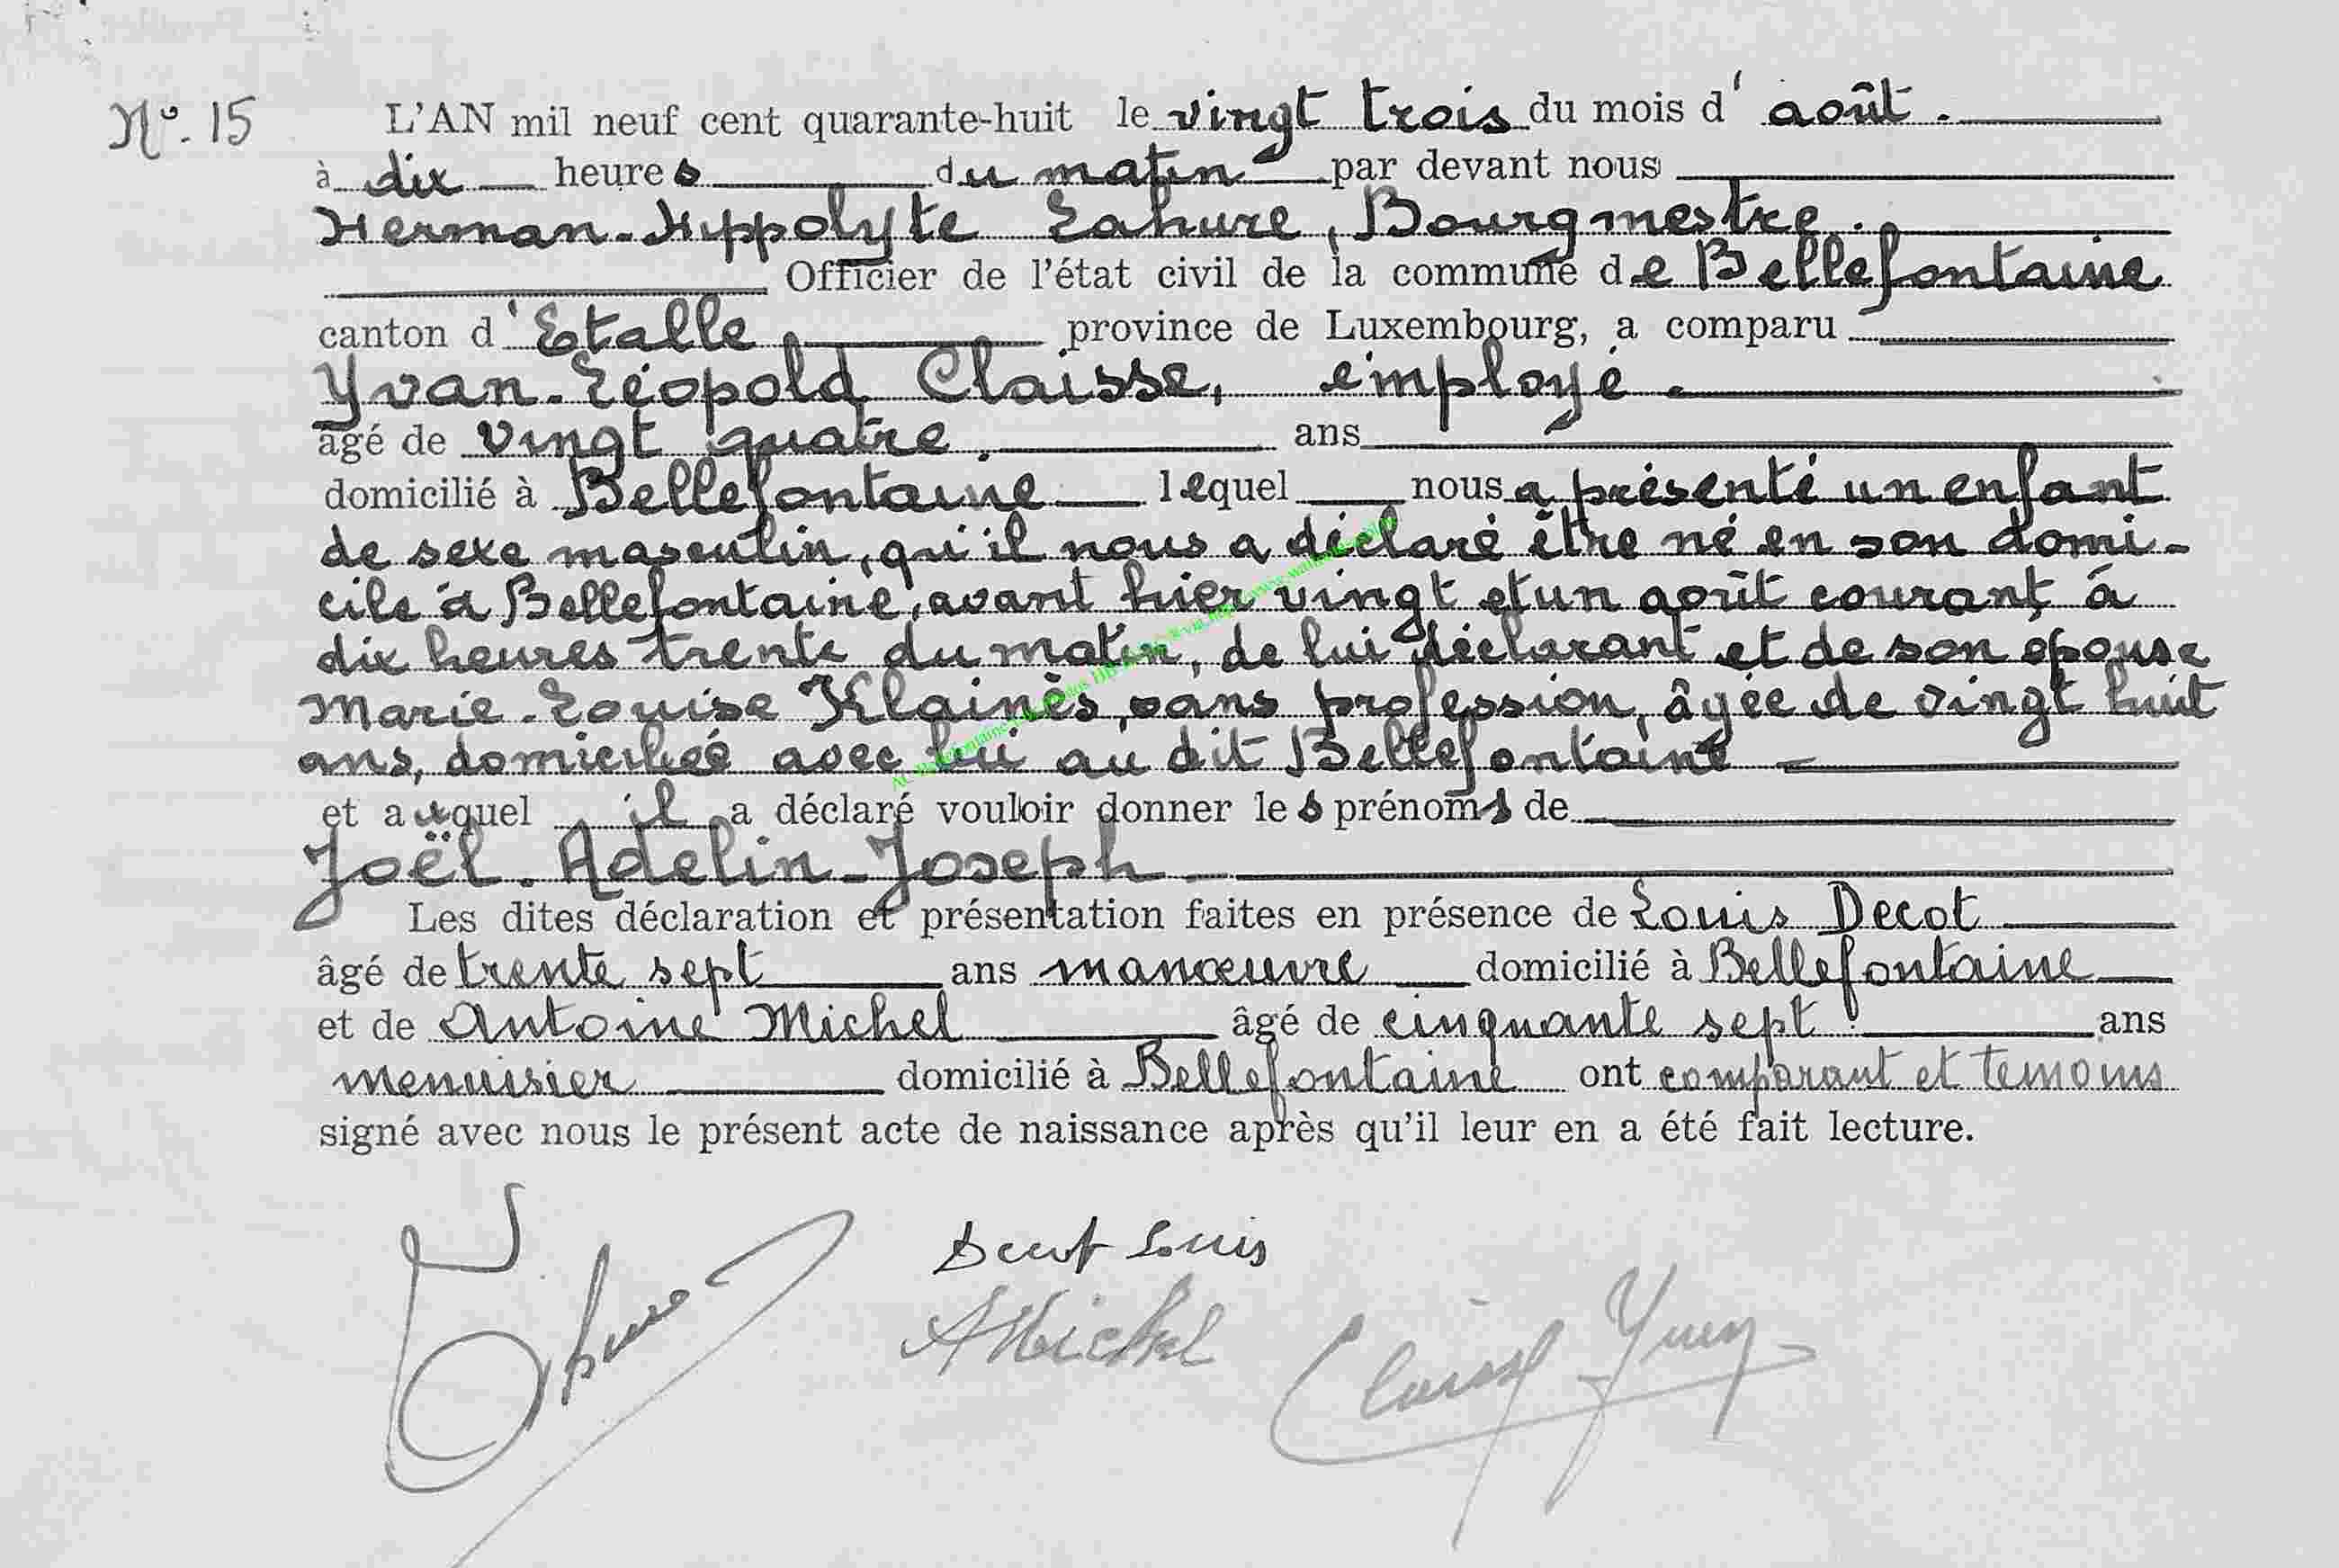 N° 15
L'AN mil neuf cent quarante-huit le vingt trois du mois d'août.
à dix heures du matin par devant nous
Herman-Hippolyte Lahure, Bourgmestre.
Officier de l'état civil de la commune de Bellefontaine
canton d'Etalle province de Luxembourg, a comparu
Yvan-Léopold Claisse, employé.
âgé de vingt quatre. ans
domicilié à Bellefontaine lequel nous a présenté un enfant
de sexe masculin, qu'il nous a déclaré être né en son domi-
cile à Bellefontaine, avant hier vingt et un août courant à
dix heures trente du matin, de lui déclarant et de son épouse
Marie-Louise Klainès, sans profession, âgée de vingt huit
ans, domiciliée avec lui au dit Bellefontaine -
et auquel il a déclaré vouloir donner les prénoms de
Joël-Adelin-Joseph
Les dites déclaration et présentation faites en présence de Louis Decot
âgé de trente sept ans manœuvre domicilié à Bellefontaine
et de Antoine Michel âgé de cinquante sept ans
menuisier domicilié à Bellefontaine ont comparant et temoins
signé avec nous le présent acte de naissance après qu'il leur en a été fait lecture.
Decot Louis
AMichel
Claisse Yvan